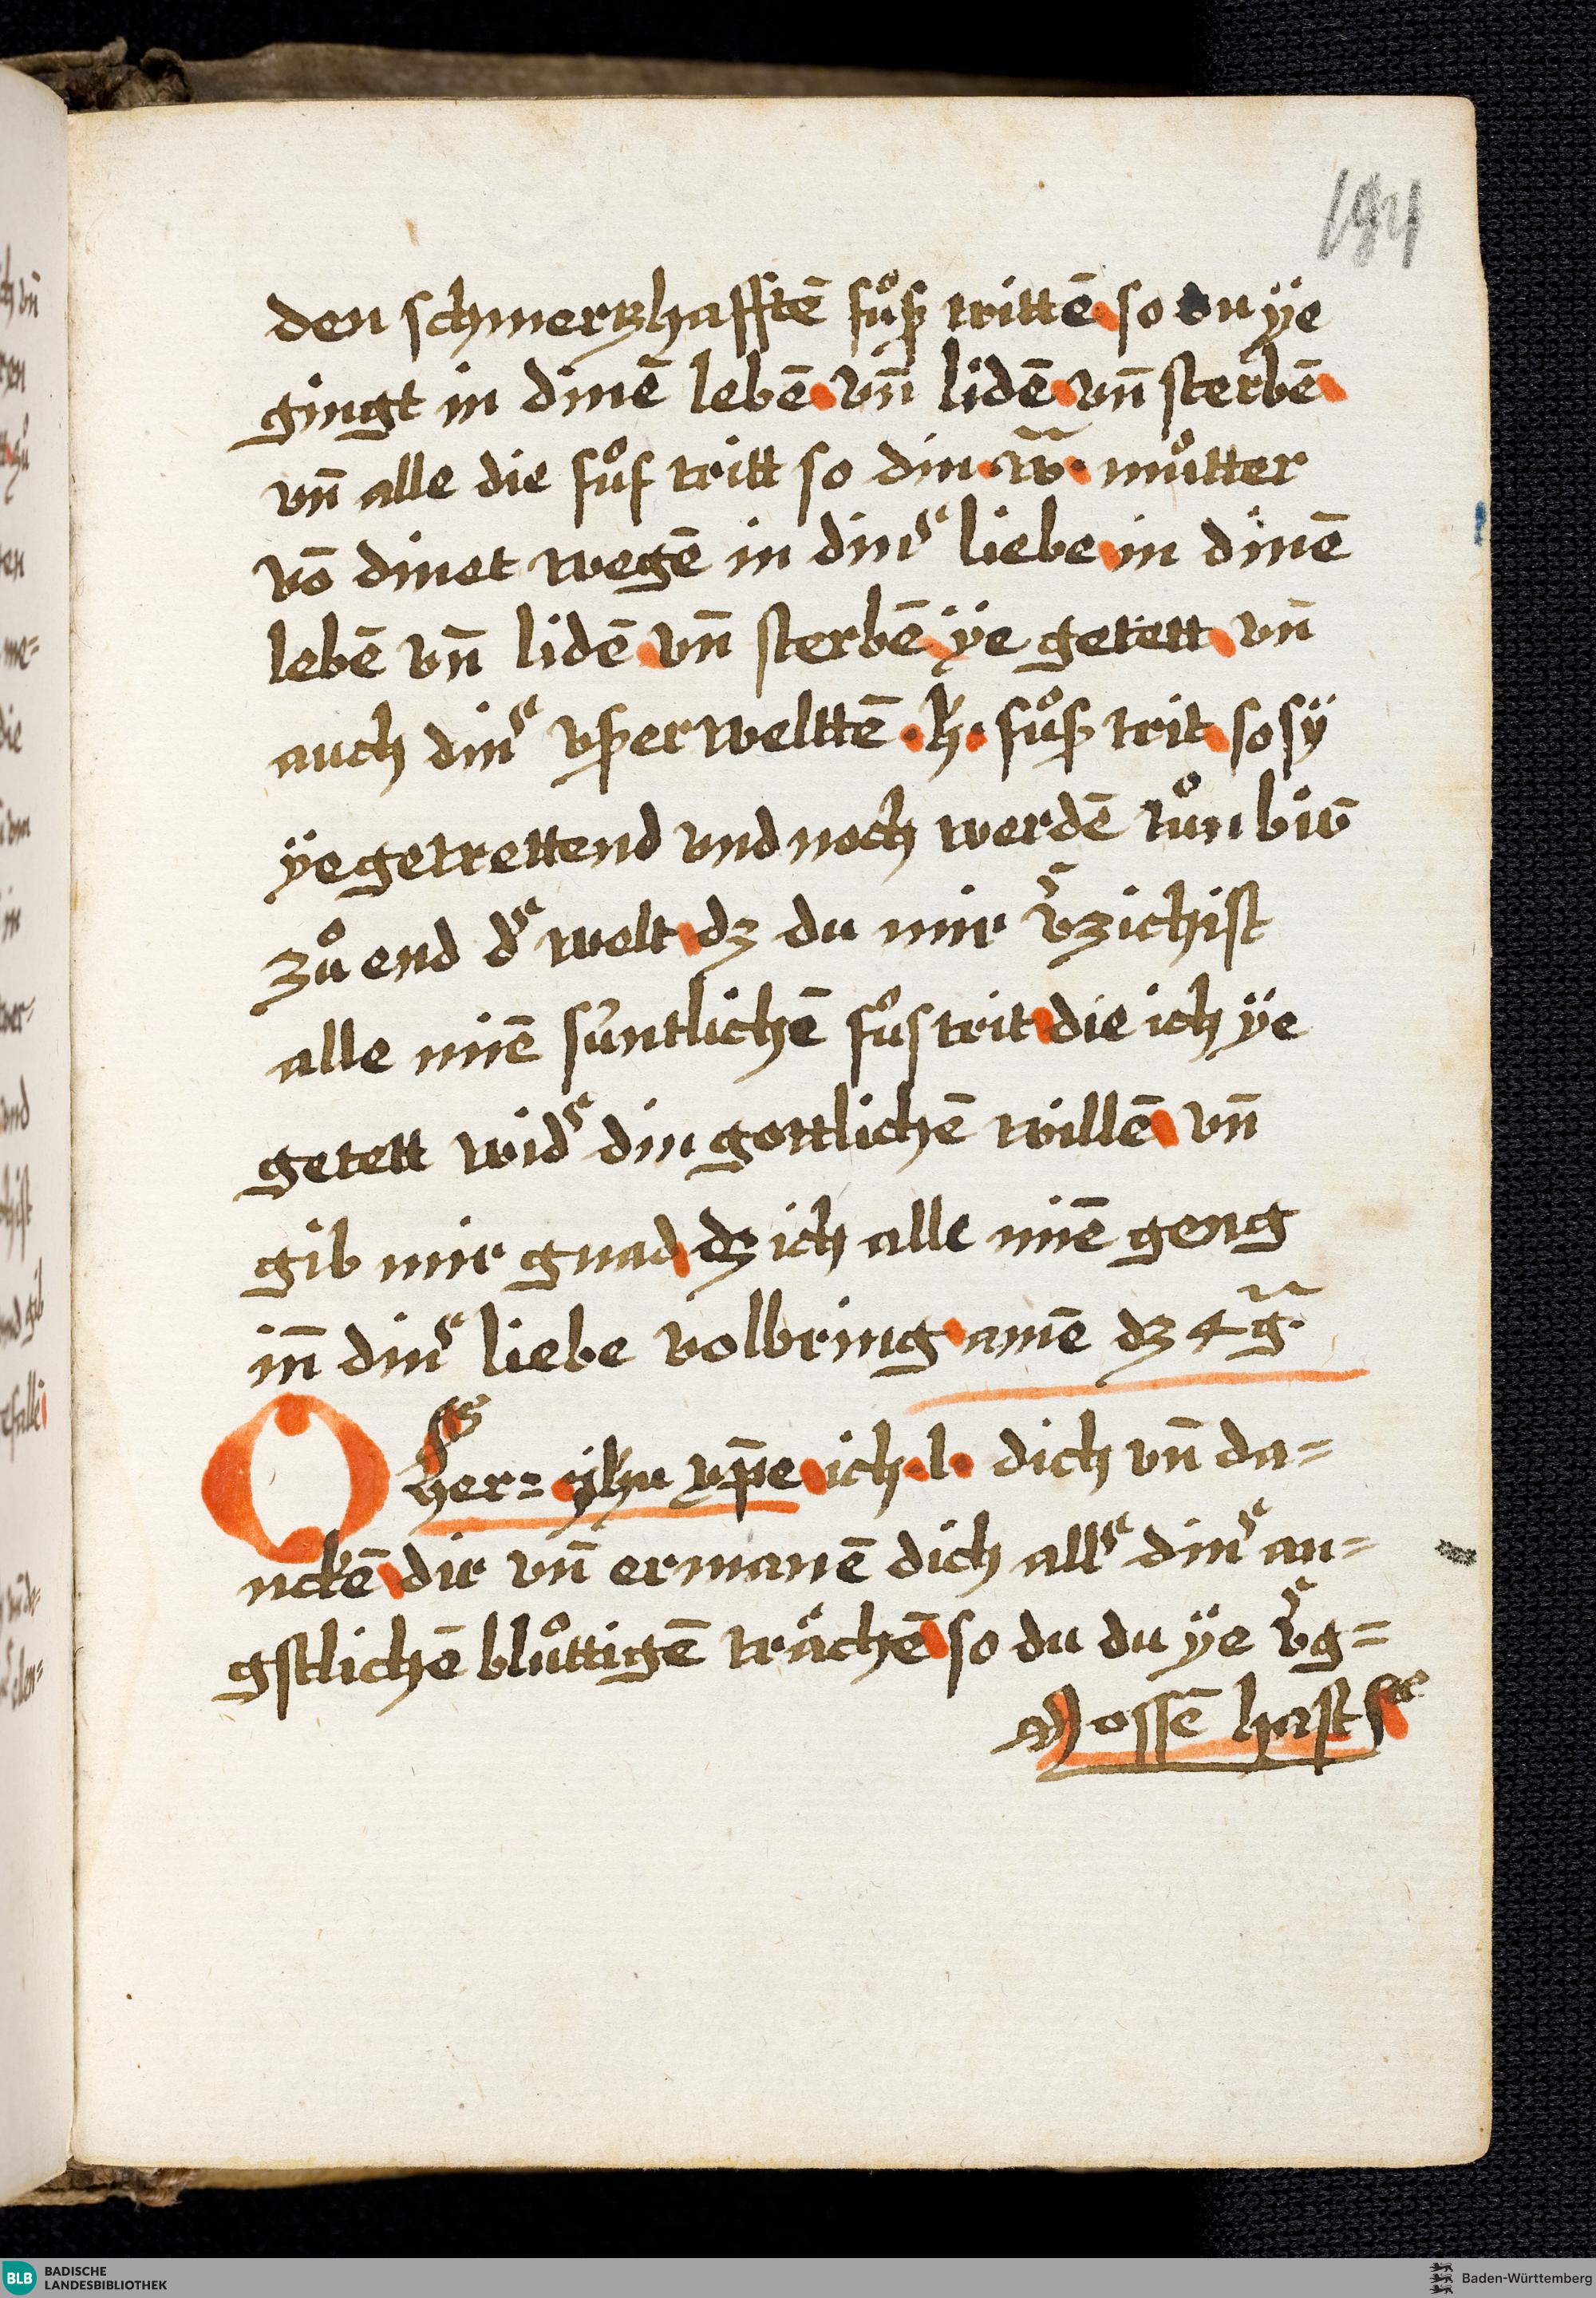 194
den schmertzhafftē fuͦß trittē so du ÿe
gingt in dinē lebē vn̄ lidē vn̄ sterbē
vn̄ alle die fuͦß tritt so din w̄ muͦtter
vō dinet wegē in dinˢ liebe in dinē
lebē vn̄ lidē vn̄ sterbē ÿe getett vn̄
auch dinˢ vßerweltē .h. fuͦß trit so sÿ
ÿe getrettend vnd noch werdē tuͦn biß
zuͦ end dˢ welt dz du mir vˢzichist
alle minē suntlichē fuͦs trit die ich ÿe
getett widˢ din gottlichē willē vn̄
gib mir gnad dz ich alle minē geng
in̄ dinˢ liebe volbring amē dz 4 g̃.
O her= ÿhu xp̄e ich .l. dich vn̄ da=
nckē dir vn̄ ermanē dich allˢ dinˢ an=
gstlichē bluͦttigē traͤchē so du du ÿe vˢg=
ossē hast
BLB BADISCHE
LANDESBIBLIOTHEK
Baden-Württemberg